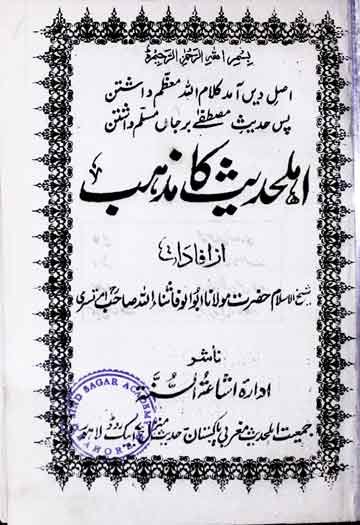 بسم الله الرحمن الرحيم
اصل دیں آمد کلام اللہ معظم داشتن
پس حدیث مصطفےٰ برجاں مسلم داشتن
اہلحدیث کا مذہب
از افادات
شیخ الاسلام حضرت مولانا ابوالوفا ثناء اللہ صاحب امرتسری
ناشر
ادارۂ اشاعۃ السنۃ
جمعیت اہلحدیث مغربی پاکستان حدیث منزل ایبک روڈ لاہور
SAGAR ACADEMY
LAHORE